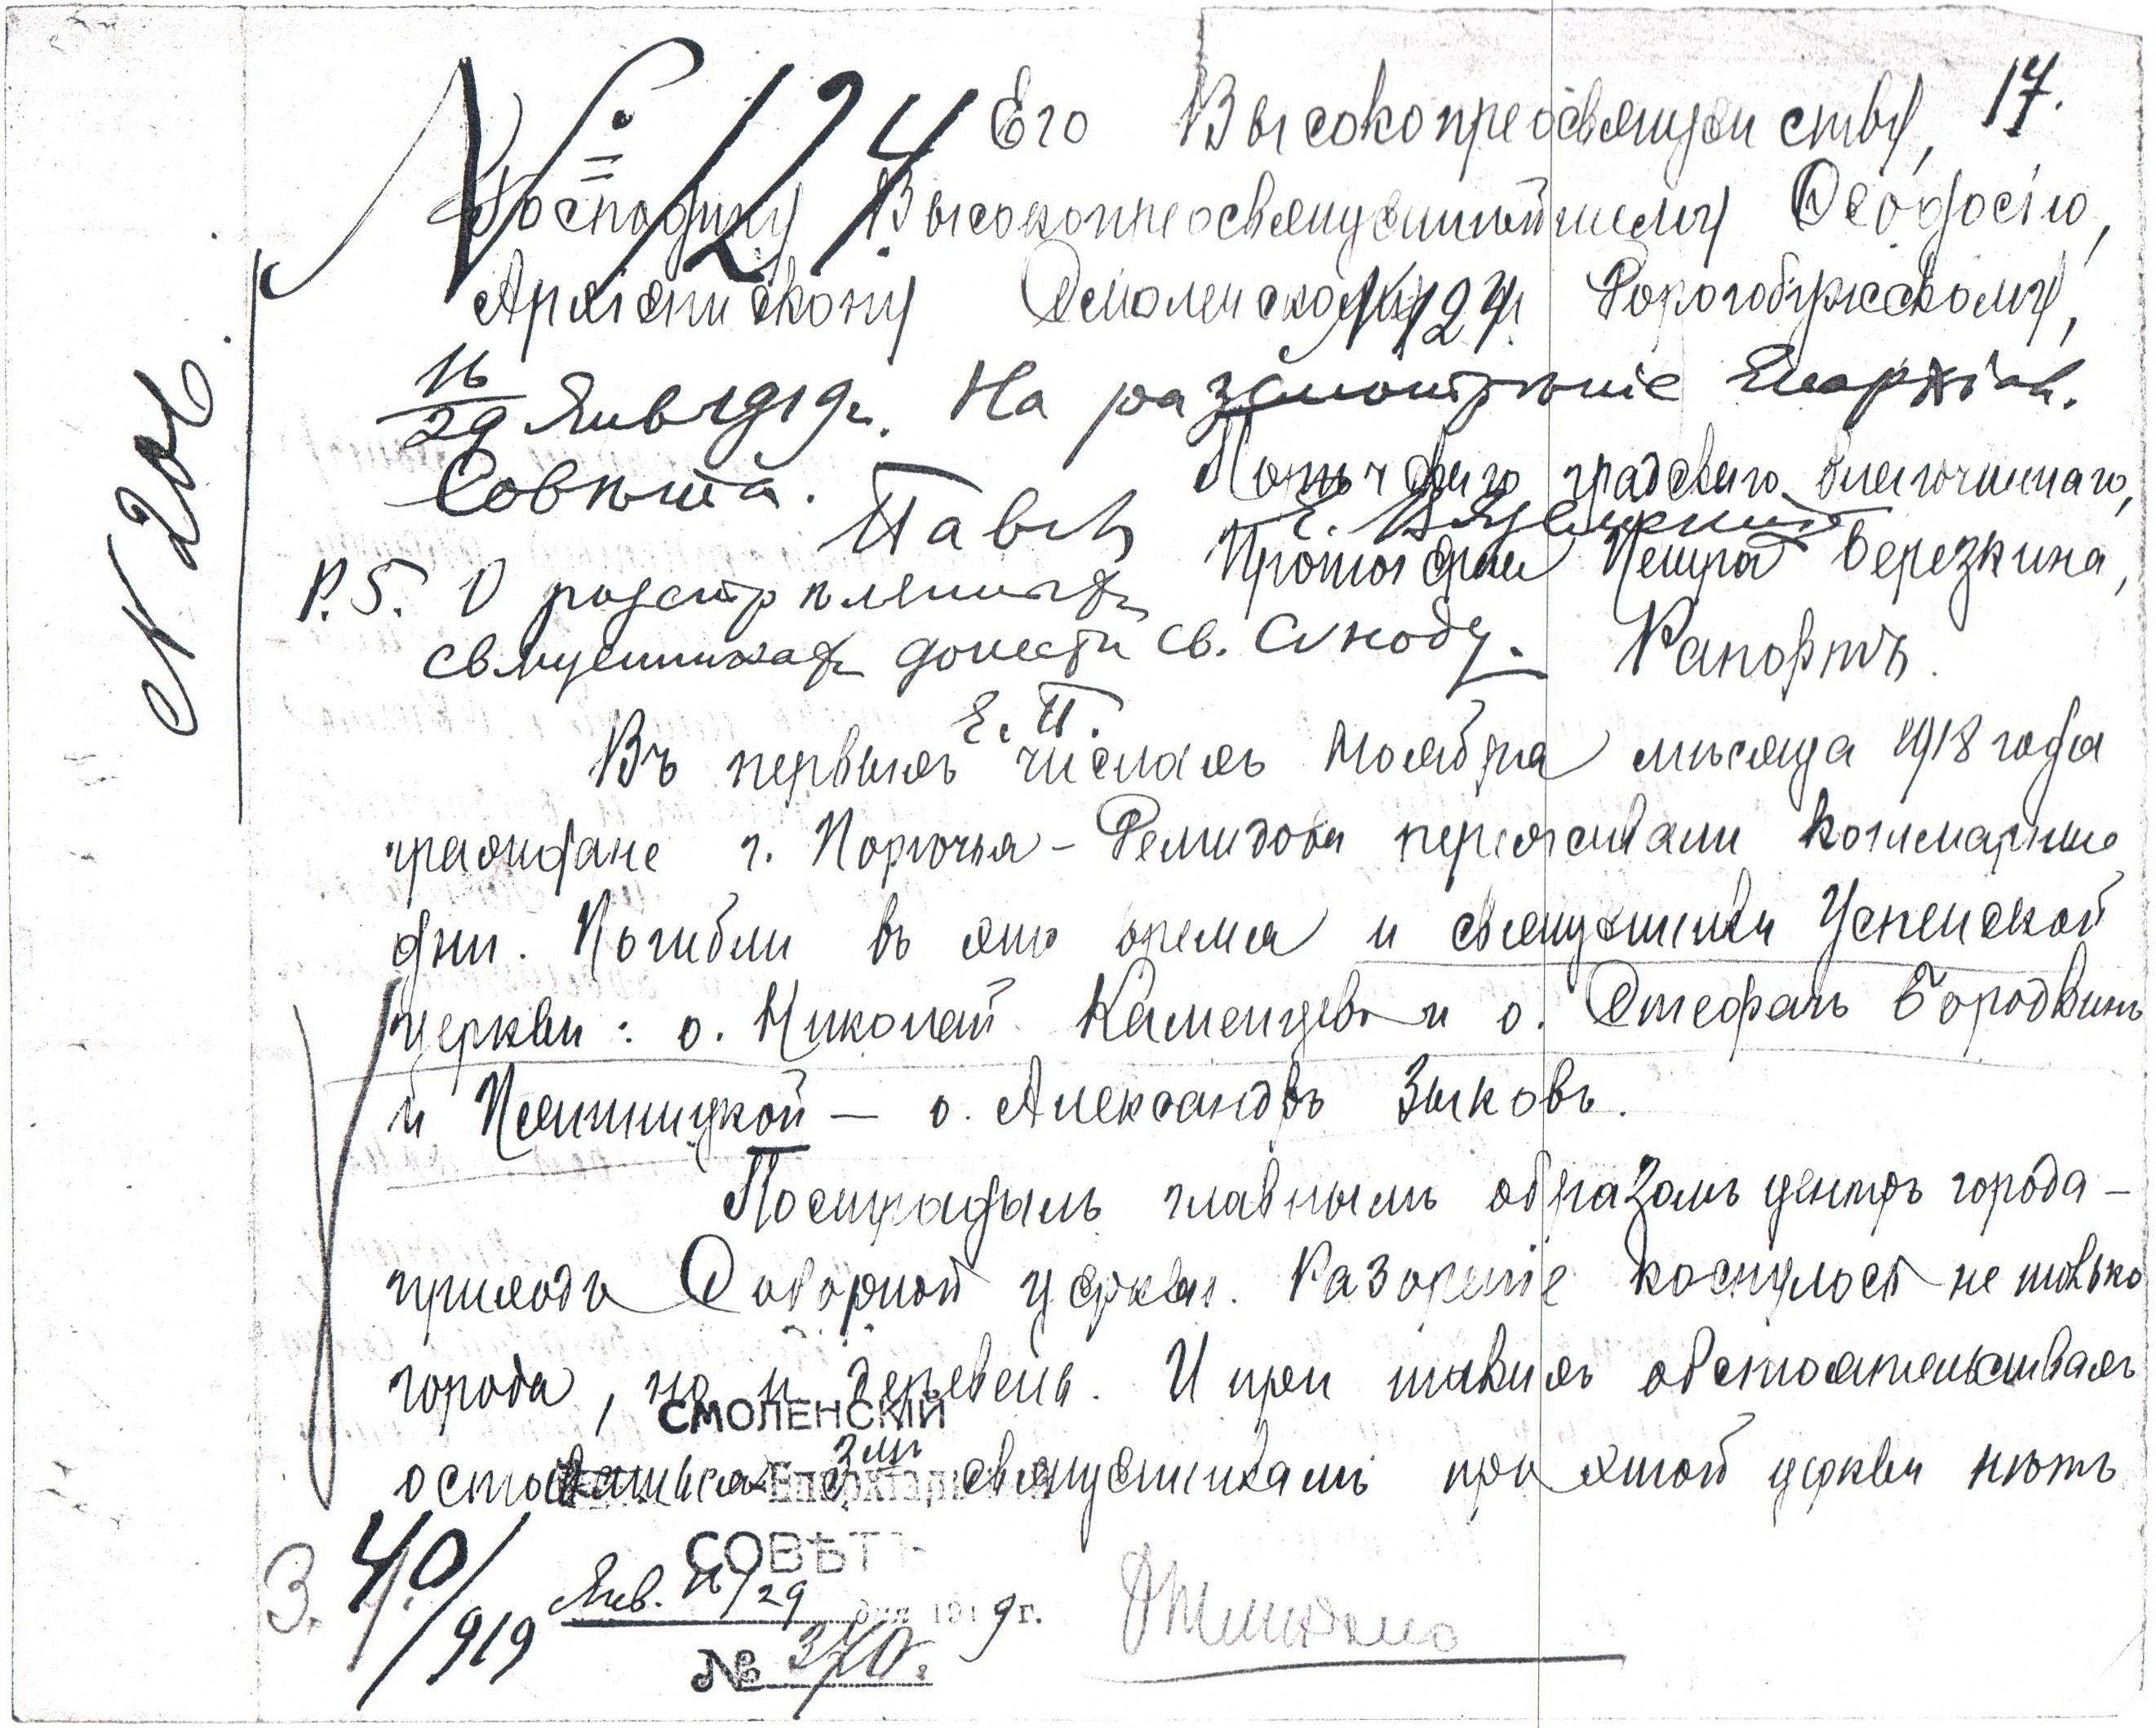 17.
№ 124
Его Высокопреосвященству,
Господину Высокопреосвященнѣйшему Ѳеодосію,
Архіепископу Смоленскому и Дорогобужскому,
№ 124.
16/29 Янв 1919 г. На разсмотрѣніе Епархіал.
Совѣта.
градскаго благочиннаго,
Е. Павелъ Е. Вяземскій
Протоіерея Петра Березкина,
P.S. О разстрѣлянныхъ
священникахъ донести св. Сѵноду.
Рапортъ.
Е. П.
Въ первыхъ числахъ Ноября мѣсяца 1918 года
граждане г. Порѣчья-Демидова переживали кошмарные
дни. Погибли въ это время и священники Успенской
церкви: о. Николай Каменцевъ и о. Стефанъ Бородкинъ
и Пятницкой — о. Александръ Зыковъ.
Пострадалъ главнымъ образомъ центръ города —
приходъ Соборной церкви. Разореніе коснулось не только
города, но и деревень. И при такихъ обстоятельствахъ
оставаться 3мъ священникамъ при этой церкви нѣтъ
№ 206.
СМОЛЕНСКІЙ
Епархіальный
СОВѢТЪ
Янв. 16/29 дня 1919 г.
№ 370.
З. 40/919